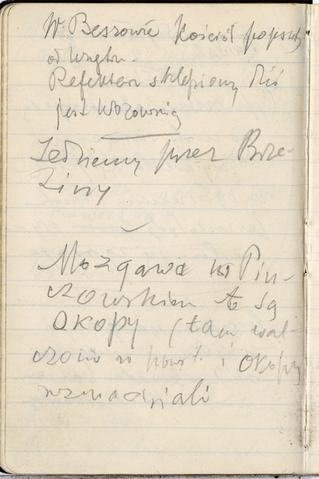 W Beszowie Kościół popsuty
od wnętrz.
Refektarz sklepiony dziś
jest wozownią
Jedziemy przez Brze-
ziny
Mozgawa w Piń-
czowskiem to są
okopy (tam wal-
czono w powst. i okopy